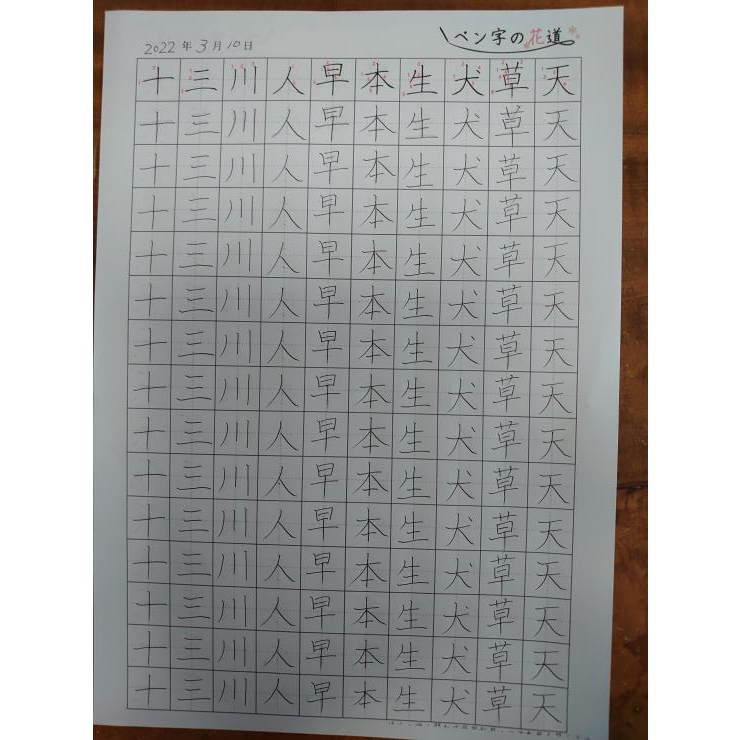 ペン字の花道
2022年3月10日
十三川人早本生犬草天
十三川人早本生犬草天
十三川人早本生犬草天
十三川人早本生犬草天
十三川人早本生犬草天
十三川人早本生犬草天
十三川人早本生犬草天
十三川人早本生犬草天
十三川人早本生犬草天
十三川人早本生犬草天
十三川人早本生犬草天
十三川人早本生犬草天
十三川人早本生犬草天
十三川人早本生犬草天
十三川人早本生犬草天